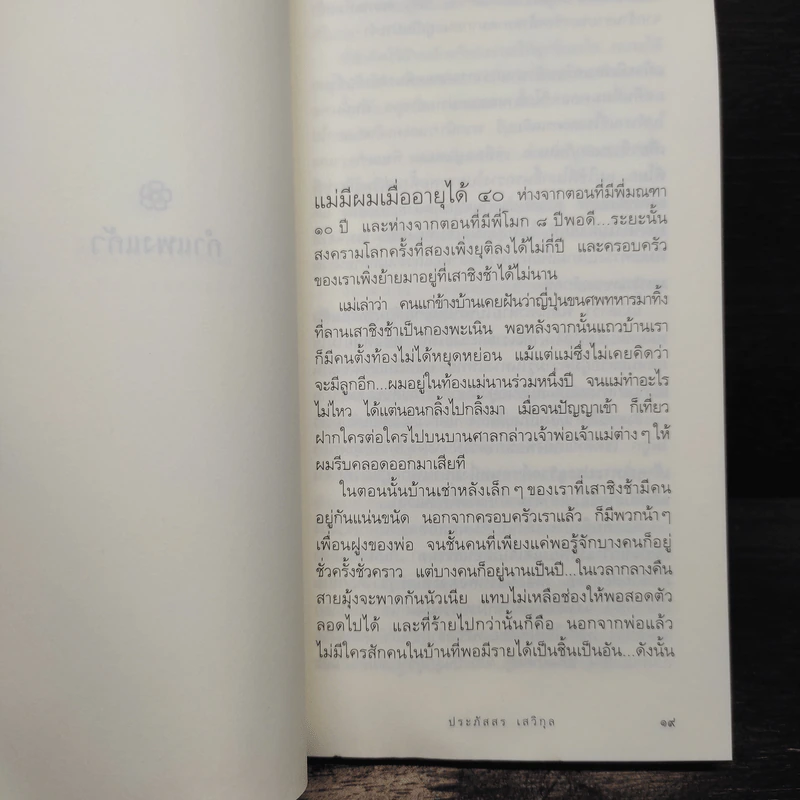 กำแพงแก้ว
แม่มีผมเมื่ออายุได้ ๔๐ ห่างจากตอนที่มีพี่มณฑา
๑๐ ปี และห่างจากตอนที่มีพี่โมก ๘ ปีพอดี...ระยะนั้น
สงครามโลกครั้งที่สองเพิ่งยุติลงได้ไม่กี่ปี และครอบครัว
ของเราเพิ่งย้ายมาอยู่ที่เสาชิงช้าได้ไม่นาน
แม่เล่าว่า คนแก่ข้างบ้านเคยฝันว่าญี่ปุ่นขนศพทหารมาทิ้ง
ที่ลานเสาชิงช้าเป็นกองพะเนิน พอหลังจากนั้นแถวบ้านเรา
ก็มีคนตั้งท้องไม่ได้หยุดหย่อน แม้แต่แม่ซึ่งไม่เคยคิดว่า
จะมีลูกอีก...ผมอยู่ในท้องแม่นานร่วมหนึ่งปี จนแม่ทำอะไร
ไม่ไหว ได้แต่นอนกลิ้งไปกลิ้งมา เมื่อจนปัญญาเข้า ก็เที่ยว
ฝากใครต่อใครไปบนบานศาลกล่าวเจ้าพ่อเจ้าแม่ต่าง ๆ ให้
ผมรีบคลอดออกมาเสียที
ในตอนนั้นบ้านเช่าหลังเล็ก ๆ ของเราที่เสาชิงช้ามีคน
อยู่กันแน่นขนัด นอกจากครอบครัวเราแล้ว ก็มีพวกน้า ๆ
เพื่อนฝูงของพ่อ จนชั้นคนที่เพียงแค่พอรู้จักบางคนก็อยู่
ชั่วครั้งชั่วคราว แต่บางคนก็อยู่นานเป็นปี...ในเวลากลางคืน
สายมุ้งจะพาดกันนัวเนีย แทบไม่เหลือช่องให้พอสอดตัว
ลอดไปได้ และที่ร้ายไปกว่านั้นก็คือ นอกจากพ่อแล้ว
ไม่มีใครสักคนในบ้านที่พอมีรายได้เป็นชิ้นเป็นอัน...ดังนั้น
ประภัสสร เสวิกุล ๑๙